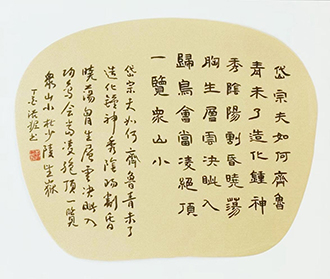 岱宗夫如何齊魯
青未了造化鍾神
秀陰陽割昏曉蕩
胸生層雲決眦入
歸鳥會當凌絕頂
一覽衆山小
岱宗夫如何齊魯青未了
造化鍾神秀陰陽割昏
曉蕩胸生層雲決眦入
歸鳥會當凌絕頂一覽
衆山小杜少陵望嶽
丁亥